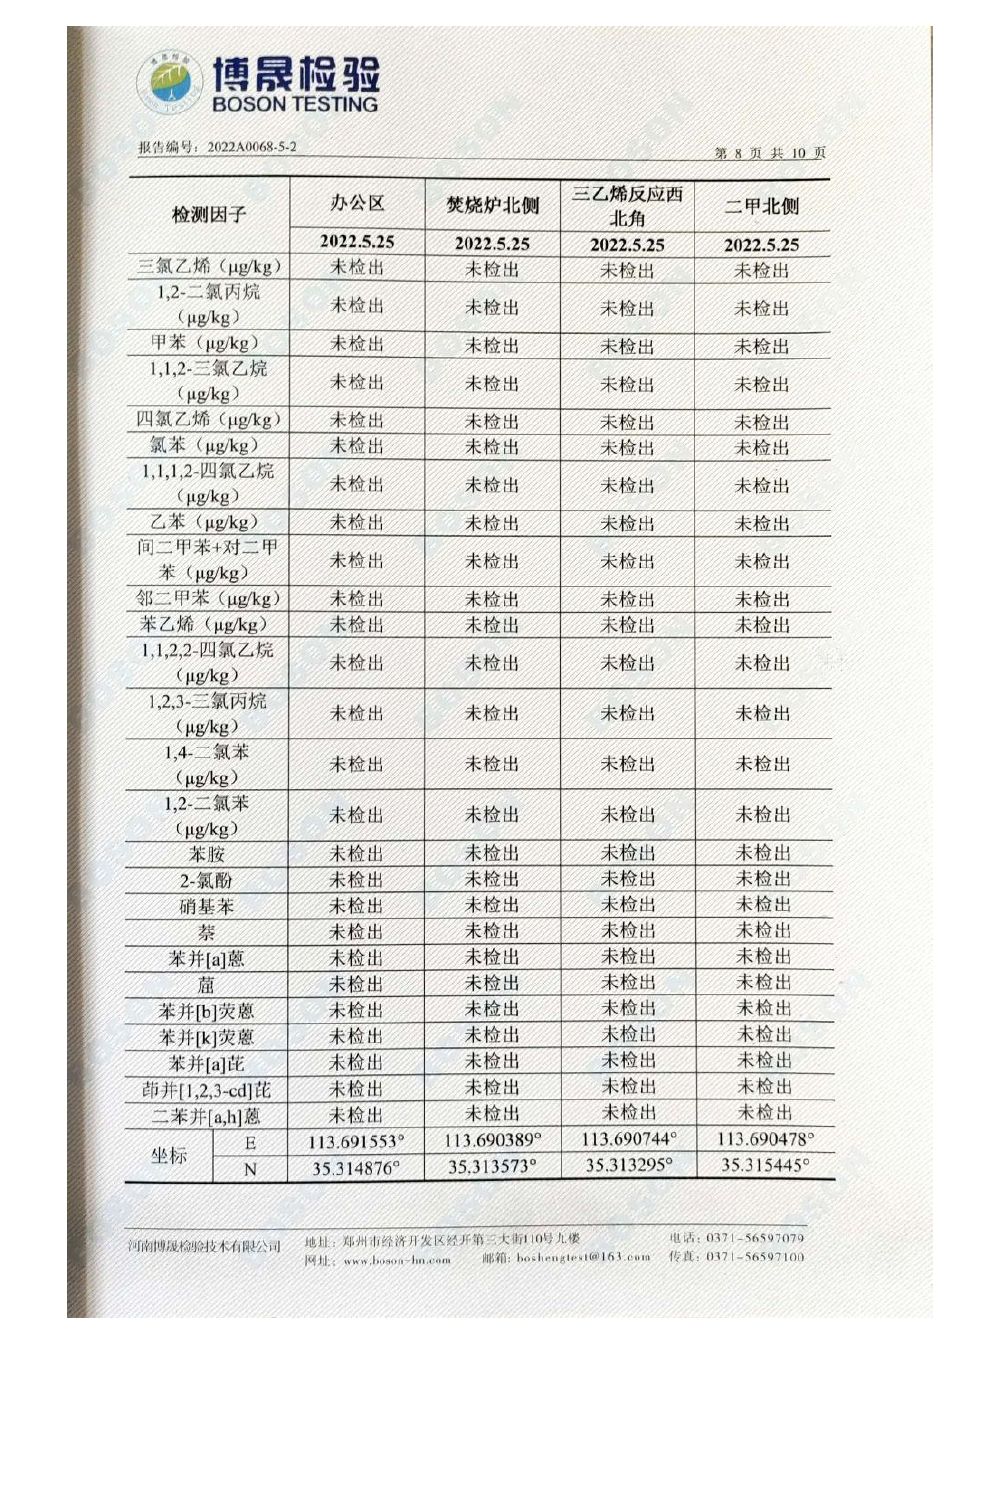 博晟检验
BOSON TESTING
报告编号：2022A0068-5-2
第 8 页 共 10 页
检测因子 办公区 焚烧炉北侧 三乙烯反应西北角 二甲北侧
2022.5.25 2022.5.25 2022.5.25 2022.5.25
三氯乙烯（μg/kg） 未检出 未检出 未检出 未检出
1,2-二氯丙烷（μg/kg） 未检出 未检出 未检出 未检出
甲苯（μg/kg） 未检出 未检出 未检出 未检出
1,1,2-三氯乙烷（μg/kg） 未检出 未检出 未检出 未检出
四氯乙烯（μg/kg） 未检出 未检出 未检出 未检出
氯苯（μg/kg） 未检出 未检出 未检出 未检出
1,1,1,2-四氯乙烷（μg/kg） 未检出 未检出 未检出 未检出
乙苯（μg/kg） 未检出 未检出 未检出 未检出
间二甲苯+对二甲苯（μg/kg） 未检出 未检出 未检出 未检出
邻二甲苯（μg/kg） 未检出 未检出 未检出 未检出
苯乙烯（μg/kg） 未检出 未检出 未检出 未检出
1,1,2,2-四氯乙烷（μg/kg） 未检出 未检出 未检出 未检出
1,2,3-三氯丙烷（μg/kg） 未检出 未检出 未检出 未检出
1,4-二氯苯（μg/kg） 未检出 未检出 未检出 未检出
1,2-二氯苯（μg/kg） 未检出 未检出 未检出 未检出
苯胺 未检出 未检出 未检出 未检出
2-氯酚 未检出 未检出 未检出 未检出
硝基苯 未检出 未检出 未检出 未检出
萘 未检出 未检出 未检出 未检出
苯并[a]蒽 未检出 未检出 未检出 未检出
䓛 未检出 未检出 未检出 未检出
苯并[b]荧蒽 未检出 未检出 未检出 未检出
苯并[k]荧蒽 未检出 未检出 未检出 未检出
苯并[a]芘 未检出 未检出 未检出 未检出
茚并[1,2,3-cd]芘 未检出 未检出 未检出 未检出
二苯并[a,h]蒽 未检出 未检出 未检出 未检出
坐标 E 113.691553° 113.690389° 113.690744° 113.690478°
N 35.314876° 35.313573° 35.313295° 35.315445°
河南博晟检验技术有限公司 地址：郑州市经济开发区经开第三大街110号九楼 电话：0371-56597079
网址：www.boson-hn.com 邮箱：boshengtest@163.com 传真：0371-56597100